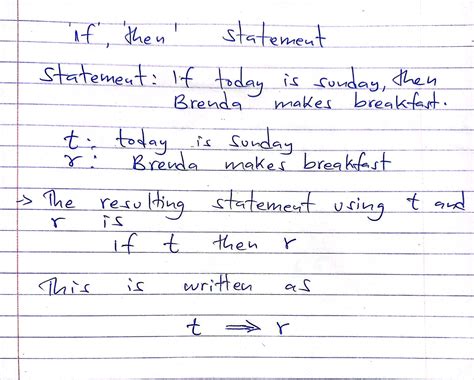 'if', 'then' statement
Statement: If today is sunday, then
Brenda makes breakfast.
t: today is sunday
r: Brenda makes breakfast
→ The resulting statement using t and
r is
if t then r
This is written as
t ⇒ r